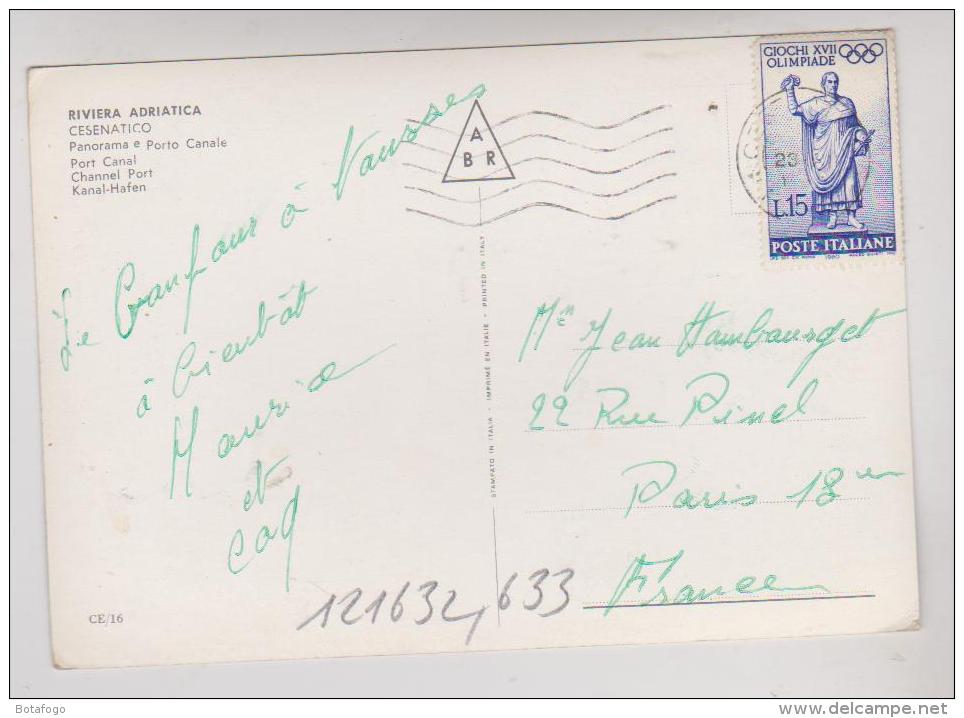 RIVIERA ADRIATICA
CESENATICO
Panorama e Porto Canale
Port Canal
Channel Port
Kanal-Hafen
A
B R
GIOCHI XVII
OLIMPIADE
23
L.15
POSTE ITALIANE
1960
à
à bientôt
et
STAMPATO IN ITALIA - IMPRIMÉ EN ITALIE - PRINTED IN ITALY
Jean Hambourget
22 Rue Pinel
Paris 13 em
France
121632,633
CE/16
Botafogo
delcampe.net